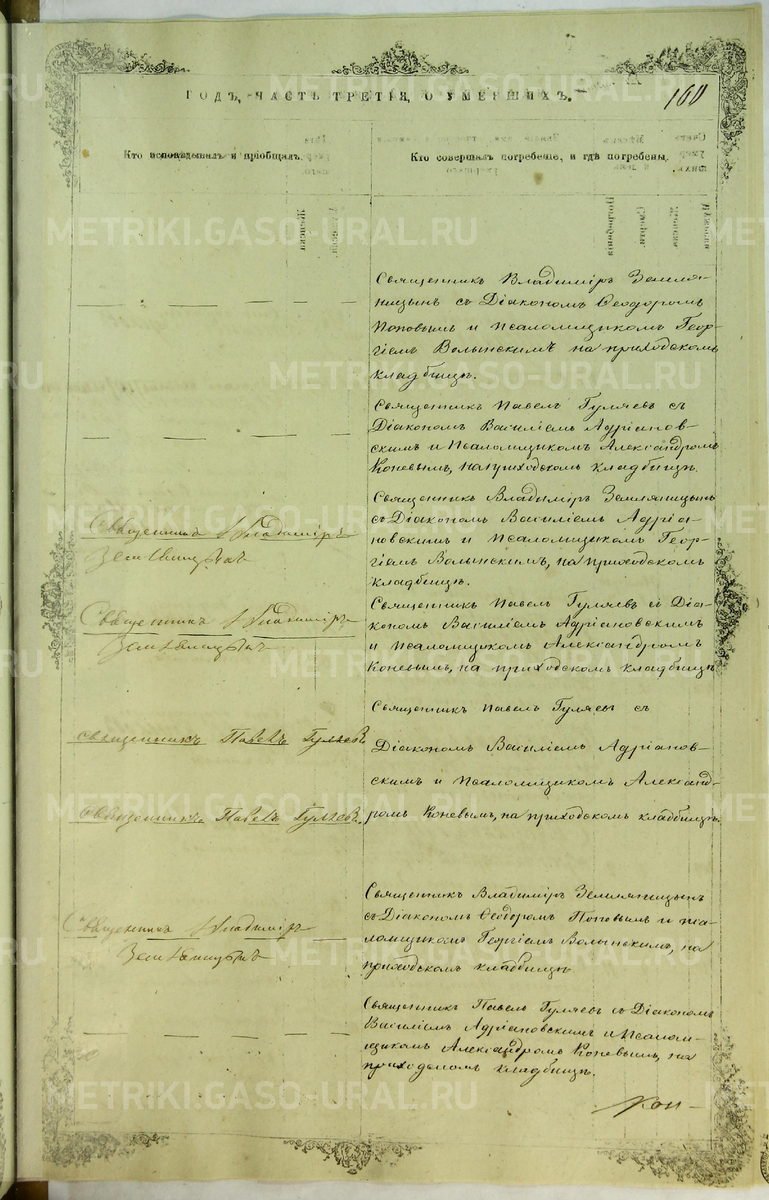 ГОДЪ, ЧАСТЬ ТРЕТІЯ, О УМЕРШИХЪ.
160
Кто исповѣдывалъ и пріобщалъ.
Кто совершалъ погребеніе, и гдѣ погребены.
METRIKI.GASO-URAL.RU
Священникъ Владиміръ Земля-
ницынъ съ Діакономъ Ѳеодоромъ
Поповымъ и псаломщикомъ Геор-
гіемъ Волынскимъ на приходскомъ
кладбищѣ.
Священникъ Павелъ Гуляевъ съ
Діакономъ Василіемъ Адріанов-
скимъ и Псаломщикомъ Александромъ
Коневымъ, на приходскомъ кладбищѣ.
Священникъ Владиміръ
Земляницынъ
Священникъ Владиміръ Земляницынъ
съ Діакономъ Василіемъ Адріа-
новскимъ и Псаломщикомъ Геор-
гіемъ Волынскимъ, на приходскомъ
кладбищѣ.
Священникъ Владиміръ
Земляницынъ
Священникъ Павелъ Гуляевъ съ Діа-
кономъ Василіемъ Адріановскимъ
и Псаломщикомъ Александромъ
Коневымъ, на приходскомъ кладбищѣ
Священникъ Павелъ Гуляевъ
Священникъ Павелъ Гуляевъ.
Священникъ Павелъ Гуляевъ съ
Діакономъ Василіемъ Адріанов-
скимъ и Псаломщикомъ Александ-
ромъ Коневымъ, на приходскомъ кладбищѣ.
Священникъ Владиміръ
Земляницынъ
Священникъ Владиміръ Земляницынъ
съ Діакономъ Ѳеодоромъ Поповымъ и пса-
ломщикомъ Георгіемъ Волынскимъ, на
приходскомъ кладбищѣ
Священникъ Павелъ Гуляевъ съ Діакономъ
Василіемъ Адріановскимъ и Псалом-
щикомъ Александромъ Коневымъ, на
кладбищѣ.